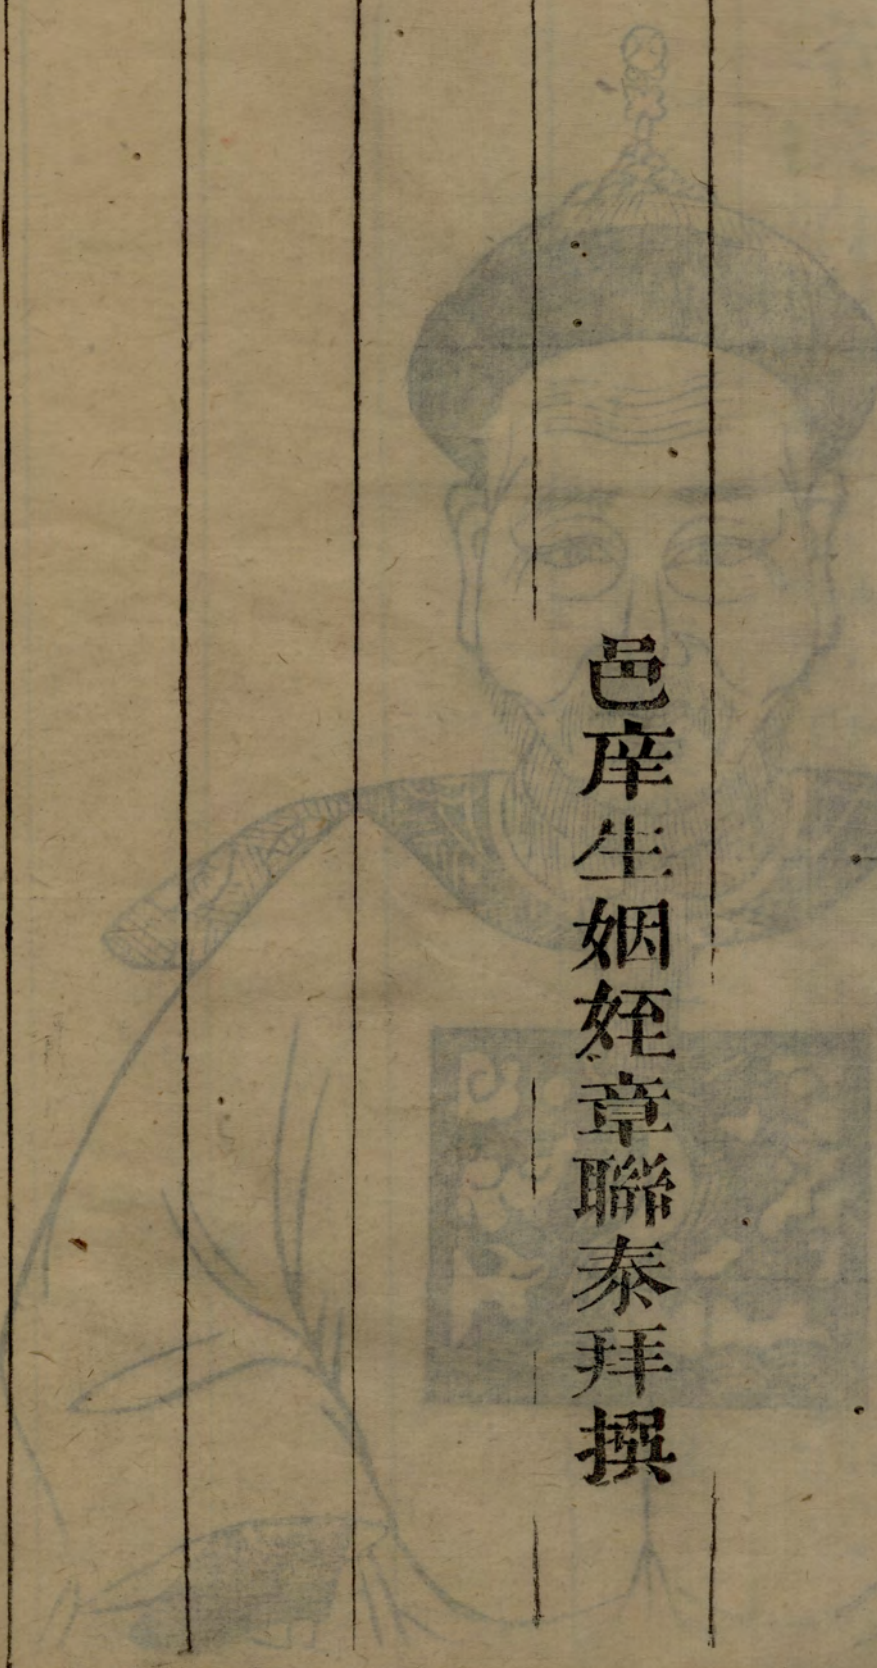 邑庠生姻姪章聯泰拜撰